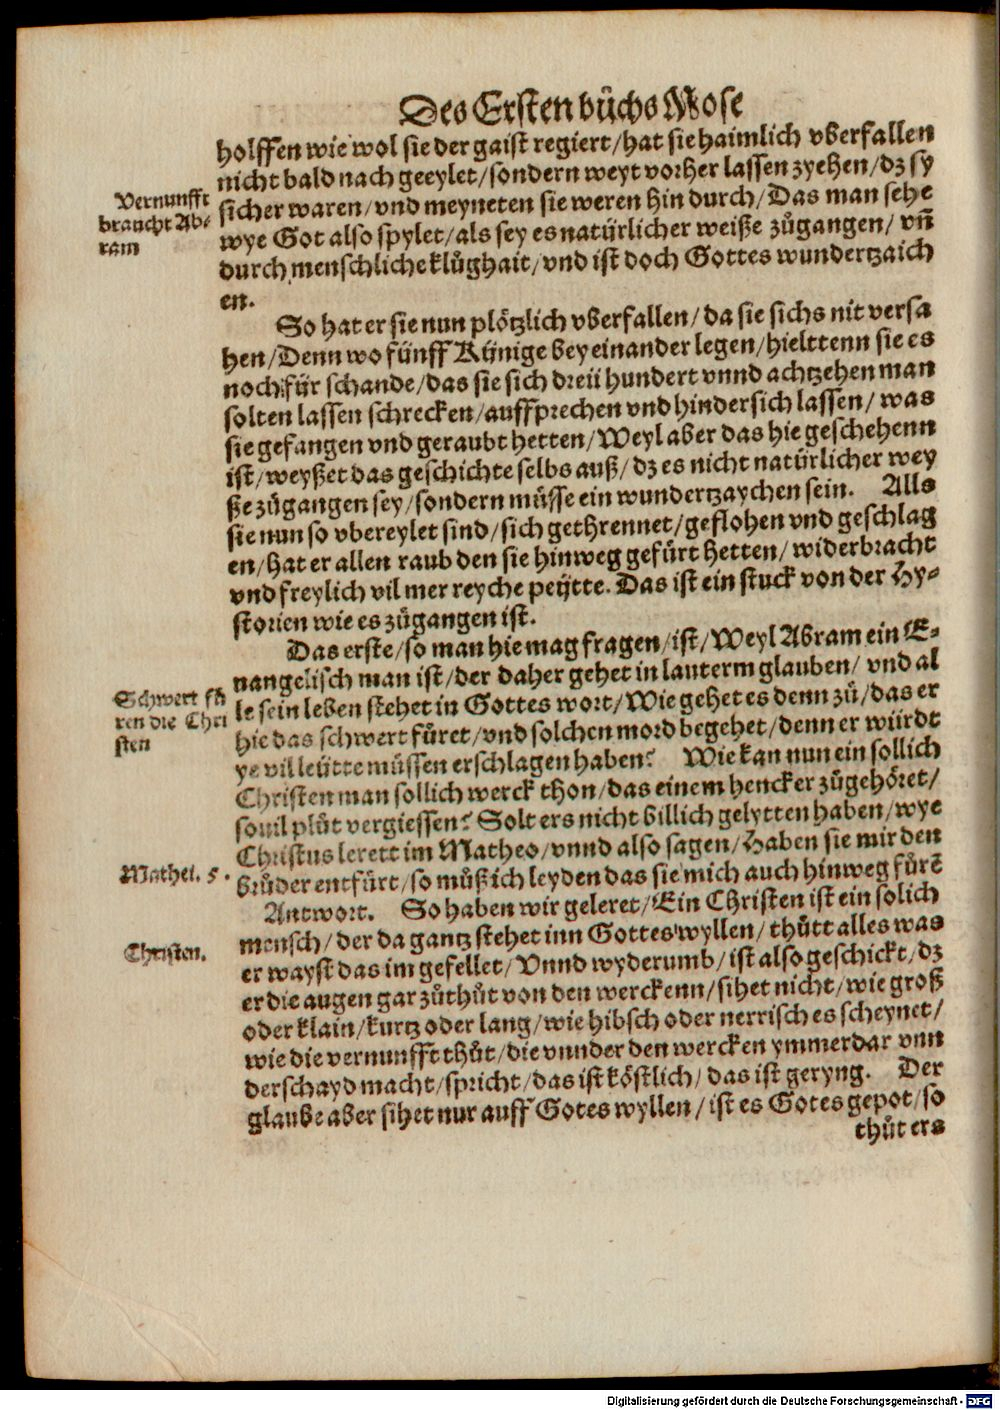 Des Ersten bůchs Mose
holffen wie wol sie der gaist regiert/ hat sie haimlich vberfallen
nicht bald nach geeylet/ sondern weyt vorher lassen zyehen/ dz sy
Vernunfft
braucht Ab-
ram
sicher waren/ vnd meyneten sie weren hin durch/ Das man sehe
wye Got also spylet/ als sey es natürlicher weiße zůgangen/ vn̄
durch menschliche klůghait/ vnd ist doch Gottes wundertzaich
en.
So hat er sie nun plötzlich vberfallen/ da sie sichs nit versa
hen/ Denn wo fünff Künige bey einander legen/ hielttenn sie es
noch für schande/ das sie sich dreü hundert vnnd achtzehen man
solten lassen schrecken/ auffsprechen vnd hindersich lassen/ was
sie gefangen vnd geraubt hetten/ Weyl aber das hie geschehenn
ist/ weyßet das geschichte selbs auß/ dz es nicht natürlicher wey
ße zůgangen sey/ sondern müsse ein wundertzaychen sein. Alls
sie nun so vbereylet sind/ sich gethrennet/ geflohen vnd geschlag
en/ hat er allen raub den sie hinweg gefürt hetten/ widerbracht
vnd freylich vil mer reyche peütte. Das ist ein stuck von der Hy-
storien wie es zůgangen ist.
Das erste/ so man hie mag fragen/ ist/ Weyl Abram ein E-
uangelisch man ist/ der daher gehet in lauterm glauben/ vnd al
Schwert fü
ren die Chri
sten
le sein leben stehet in Gottes wort/ Wie gehet es denn zů/ das er
hie das schwert füret/ vnd solchen mord begehet/ denn er würdt
ye vil leütte müssen erschlagen haben? Wie kan nun ein sollich
Christen man sollich werck thon/ das einem hencker zůgehöret/
souil plůt vergiessen? Solt ers nicht billich gelytten haben/ wye
Christus lerett im Matheo/ vnnd also sagen/ Haben sie mir den
Mathei. 5.
brůder entfürt/ so můß ich leyden das sie mich auch hinweg fürē
Antwort. So haben wir geleret/ Ein Christen ist ein solich
Christen.
mensch/ der da gantz stehet inn Gottes wyllen/ thůtt alles was
er wayst das im gefellet/ Vnnd wyderumb/ ist also geschickt/ dz
er die augen gar zůthůt von den werckenn/ sihet nicht/ wie groß
oder klain/ kurtz oder lang/ wie hibsch oder nerrisch es scheynet/
wie die vernunfft thůt/ die vnnder den wercken ymmerdar vnn
derschayd macht/ spricht/ das ist köstlich/ das ist geryng. Der
glaube aber sihet nur auff Gotes wyllen/ ist es Gotes gepot/ so
thůt ers
Digitalisierung gefördert durch die Deutsche Forschungsgemeinschaft - DFG